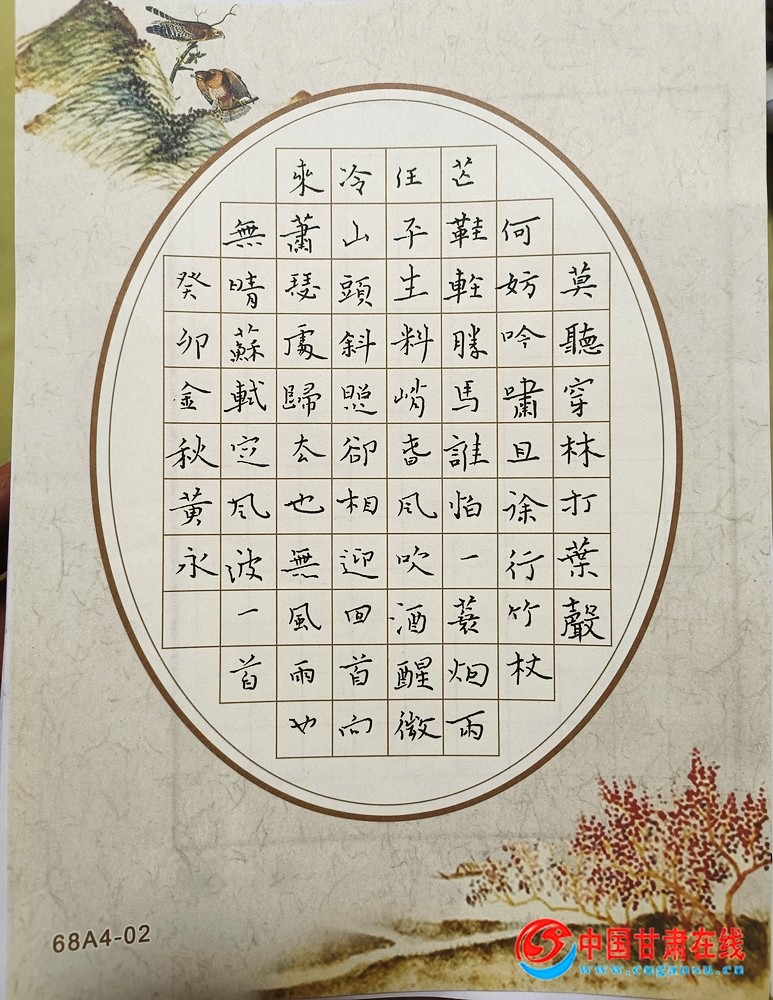 莫聽穿林打葉聲
何妨吟嘯且徐行竹杖
芒鞋輕勝馬誰怕一蓑烟雨
任平生料峭春風吹酒醒微
冷山頭斜照卻相迎回首向
來蕭瑟處歸去也無風雨也
無晴蘇軾定風波一首
癸卯金秋黃永
68A4-02
中国甘肃在线
www.cngansu.cn